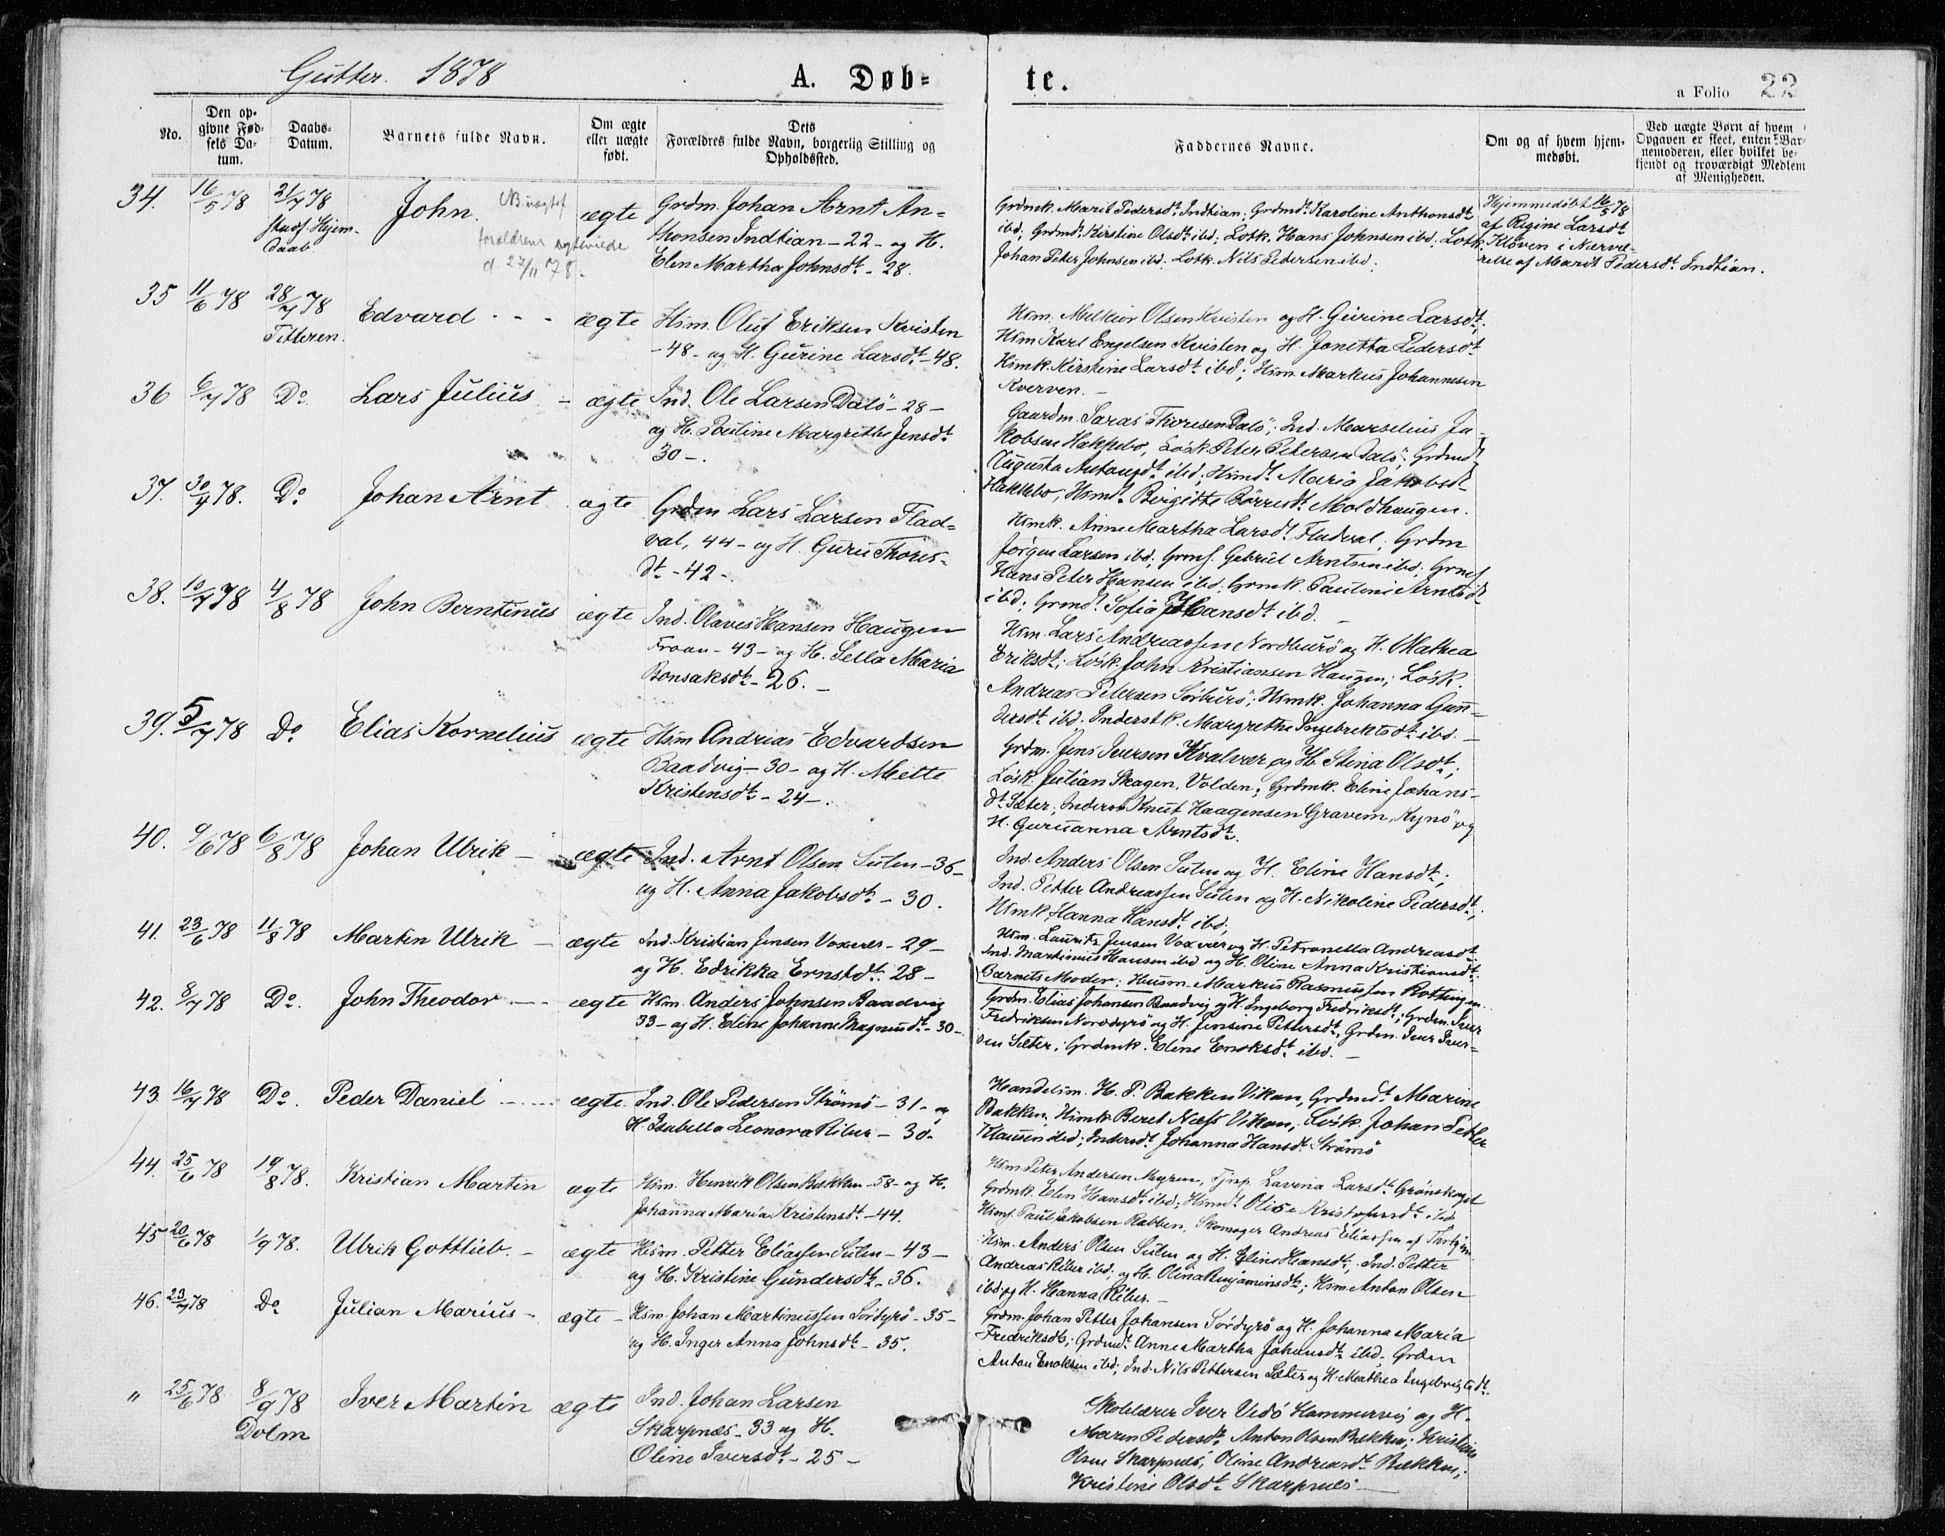 Gutter. 1878 A. Døb= te. a Folio 22
No.
Den op-
givne Fød-
sels Da-
tum.
Daabs-
Datum.
Barnets fulde Navn.
Om ægte
eller uægte
født.
Dets
Forældres fulde Navn, borgerlig Stilling og
Opholdssted.
Faddernes Navne.
Om og af hvem hjem-
medøbt.
Ved uægte Børn af hvem
Opgaven er skeet, enten Bar-
nemoderen, eller hvilket be-
kjendt og troværdigt Medlem
af Menigheden.
34. 16/5 78 21/7 78
Hjem-
daab
John. NB uægte
forældrene egteviede
d. 27/11 78.
ægte
Grdm. Johan Arnt An-
thonsen Indtian - 22 - og H.
Elen Martha Johnsdt - 28.
Grdmk. Marit Pedersdt Indtian; Grdmdt Karoline Anthonsdt
ibd; Grdmdt Kirstine Olsdt ibd; Losk. Hans Johnsen ibd; Losk.
Johan Peter Johnsen ibd; Losk. Nils Pedersen ibd;
Hjemmedøbt 16/5 78
af Regine Larsdt
Kløven i Nærvæ-
relse af Marit Pedersdt Indtian.
35 11/6 78 28/7 78
Titteren.
Edvard - - -
ægte
Hsm. Oluf Eriksen Kvisten
- 48 - og H. Gurine Larsdt - 48.
Hsm. Melkior Olsen Kvisten og H. Gurine Larsdt;
Hsm Karl Engelsen Kvisten og H. Jonetta Pedersdt
Hsmk. Kirstine Larsdt ibd; Hsm. Markus Johannesen
Kverven. -
36 6/7 78 Do. Lars Julius - ægte
Ind. Ole Larsen Dalø - 28 -
og H. Pauline Margrethe Jensdt
30 -.
Gaardm. Saras Thoresen Dalø; Ind. Marselius Ja-
kobsen Hakkebo, Losk. Peter Petersen Dalø; Grdmdt
Augusta Antonsdt ibd; Hsmdt Maria Jakobsdt
Hakkebo; Hsmdt Birgitte Børresdt Moldhaugen.
37. 30/4 78. Do Johan Arnt ægte
Grdm Lars Larsen Flad-
val, 44 - og H. Guru Thores-
dt - 42 -.
Hsmk. Anne Martha Larsdt Fladval; Grdm
Jørgen Larsen ibd; Grms. Gabriel Arntsen ibd. Grms.
Hans Peter Hansen ibd. Grmk. Pauline Arntsdt
ibd; Grmdt Sofia Hansdt ibd. -
38. 10/7 78 4/8 78 John Berntinus ægte
Ind. Olaves Hansen Haugen
Froan - 43 - og H. Sella Maria
Bonsaksdt - 26. -
Hsm. Lars Andreassen Nordburø og H. Mathea
Eriksdt; Losk. John Kristiansen Haugen; Losk.
Andreas Petersen Sørburø; Hsmk. Johanna Gun-
dersdt ibd. Inderstk. Margrethe Ingebrektsdt ibd. -
39. 5/7 78 Do Elias Kornelius ægte
Hsm Andreas Edvardsen
Baadvig - 30 - og H. Mette
Kristensdt - 24 -.
Grdm. Jens Iversen Kvalvær og H. Stina Olsdt;
Losk. Julian Skagen, Volden; Grdmk. Eline Johans-
dt Sæter; Inderst Knut Haagensen Gravem, Kynø og
H. Guruanna Arntsdt.
40. 9/6 78 6/8 78 Johan Ulrik - ægte
Ind. Arnt Olsen Sulen - 36 -
og H. Anna Jakobsdt - 30.
Ind. Anders Olsen Sulen og H. Eline Hansdt;
Ind. Petter Andreassen Sulen og H. Nikoline Pedersdt;
Hsmk. Hanna Hansdt ibd;
41. 23/6 78 11/8 78 Martin Ulrik - ægte
Ind. Kristian Jensen Voxever - 29 -
og H. Edrikka Ernstdt. 28 -
Hsm. Lauritz Jensen Voxvær og H. Petronella Andreasdt
Ind. Martinius Hansen ibd og H. Oline Anna Kristiansdt.
Barnets Moder; Husm. Markus Rasmussen Rottingen.
42. 8/7 78 Do. John Theodor - - ægte
Hsm. Anders Johnsen Baadvig
33 - og H. Eline Johanne Magnusdt - 30 -
Grdm. Elias Johansen Baadvig og H. Ingeborg Fredriksdt; Grdm. Iver
Fredriksen Norddyrø og H. Jensine Pettersdt; Grdm. Iver Iver-
sen Sæter; Grdmk. Eline Enoksdt ibd. -
43. 16/7 78 Do. Peder Daniel - - - ægte
Ind. Ole Pedersen Strømø - 31 - og
H. Isabella Leonora Riber - 30 -
Handelsm. H. P. Bakken Vikan, Grdmdt Marine
Bakken; Hsmk Beret Næss Vikan; Losk. Johan Petter
Klausen ibd; Indersdt Johanna Hansdt Strømø
44. 25/6 78 19/8 78. Kristian Martin ægte
Hsm. Henrik Olsen Bækken - 58 - og H.
Johanna Maria Kristensdt - 44.
Hsm Peter Andersen Myren, Tjnp. Lavina Larsdt Grønskaget
Grdmk. Elen Hansdt ibd; Hsmdt Olise Kristofersdt ibd
Hsms Paul Jakobsen Rabben, Skomager Andreas Eliassen af
45 20/6 78 1/9 78. Ulrik Gottlieb. - ægte
Hsm. Petter Eliassen Sulen - 43 -
og H. Kristine Gundersdt - 36.
Hsm. Anders Olsen Sulen og H. Eline Hansdt; Ind. Petter
Andreas Riber ibd; og H. Olina Benjaminsdt; Hsm Anton Olsen
ibd og H. Hanna Riber. -
46. 23/7 78 Do Julian Marius - ægte -
Hsm. Johan Martinussen Sørdyrø - 35 -
og H. Inger Anna Johnsdt - 35.
Grdm. Johan Petter Johansen Sørdyrø og H. Johanna Maria
Fredriksdt; Grdmdt Anne Martha Johansdt ibd - Grdm
Anton Enoksen ibd; Ind. Nils Pettersen Sæter og H. Mathea Ingebrigtsdt.
" 25/6 78 8/9 78
Dolm
Iver Martin ægte
Ind. Johan Larsen
Skarpnæs - 33 og H.
Oline Iversdt - 25 -
Skolelærer Iver Vedø Hammervig og H.
Maren Pedersdt, Anton Olsen Bækken; Kristine
Olsen Skarpnæs, Oline Andreasdt Bækken;
Kristine Olsdt Skarpnæs -